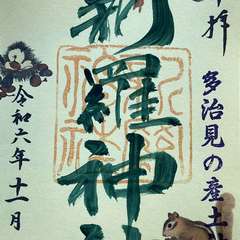 拝
多治見の産土
新羅神
令和六年十一月